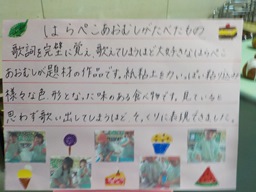 はらぺこあおむしがたべたもの
歌詞を完璧に覚え、歌えてしまうほど大好きなはらぺこ
あおむしが題材の作品です。紙粘土を力いっぱい粘り込み
様々な色、形となった味のある食べ物です。見ていると
思わず歌い出してしまうほど、そっくりに表現できました。